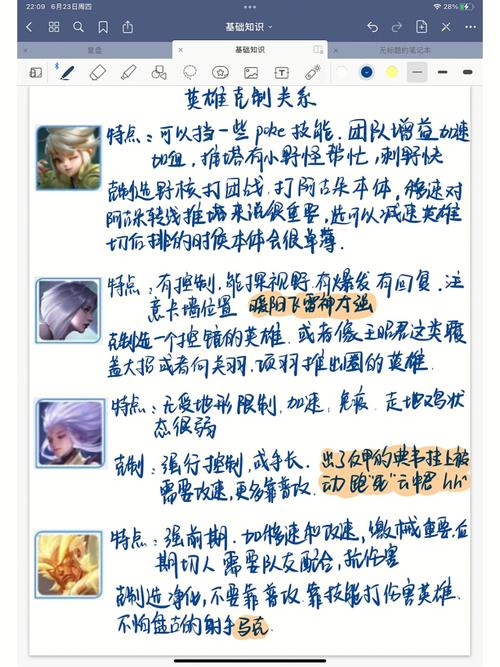 22:09 6月23日周四
28%
基础知识
复盘
基础知识
无标题的笔记本
英雄克制关系
特点：可以挡一些poke技能．团队增益加速
加血，推塔有小野怪帮忙，刺野快
克制选野核打团战．打阿古朵本体，移速对
阿古朵转线推塔来说很重要，还可以减速英雄
切后排的时候本体会很单薄．
特点：有控制，能探视野．有爆发有回复．注
意卡墙位置 暖阳飞雷神太强
克制选一个控镜的英雄．或者像王昭君这类覆
盖大招或者向关羽．项羽推出圈的英雄．
特点：无受地形限制，加速，免疫．走地鸡状
态很弱
克制：强行控制，或手长．出了反甲的典韦挂上被
需要攻速，更多靠普攻．动 跑"昆"云中君 hh"
特点：强前期．加移速和攻速，缴械重要，后
期切人需要队友配合，抗伤害
克制选净化，不要靠普攻．靠技能打伤害英雄．
不怕盘古的射手马克